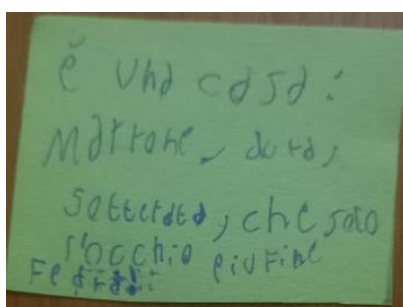 è una casa:
Marrone, dura,
sotterata, che solo
l'occhio più fine